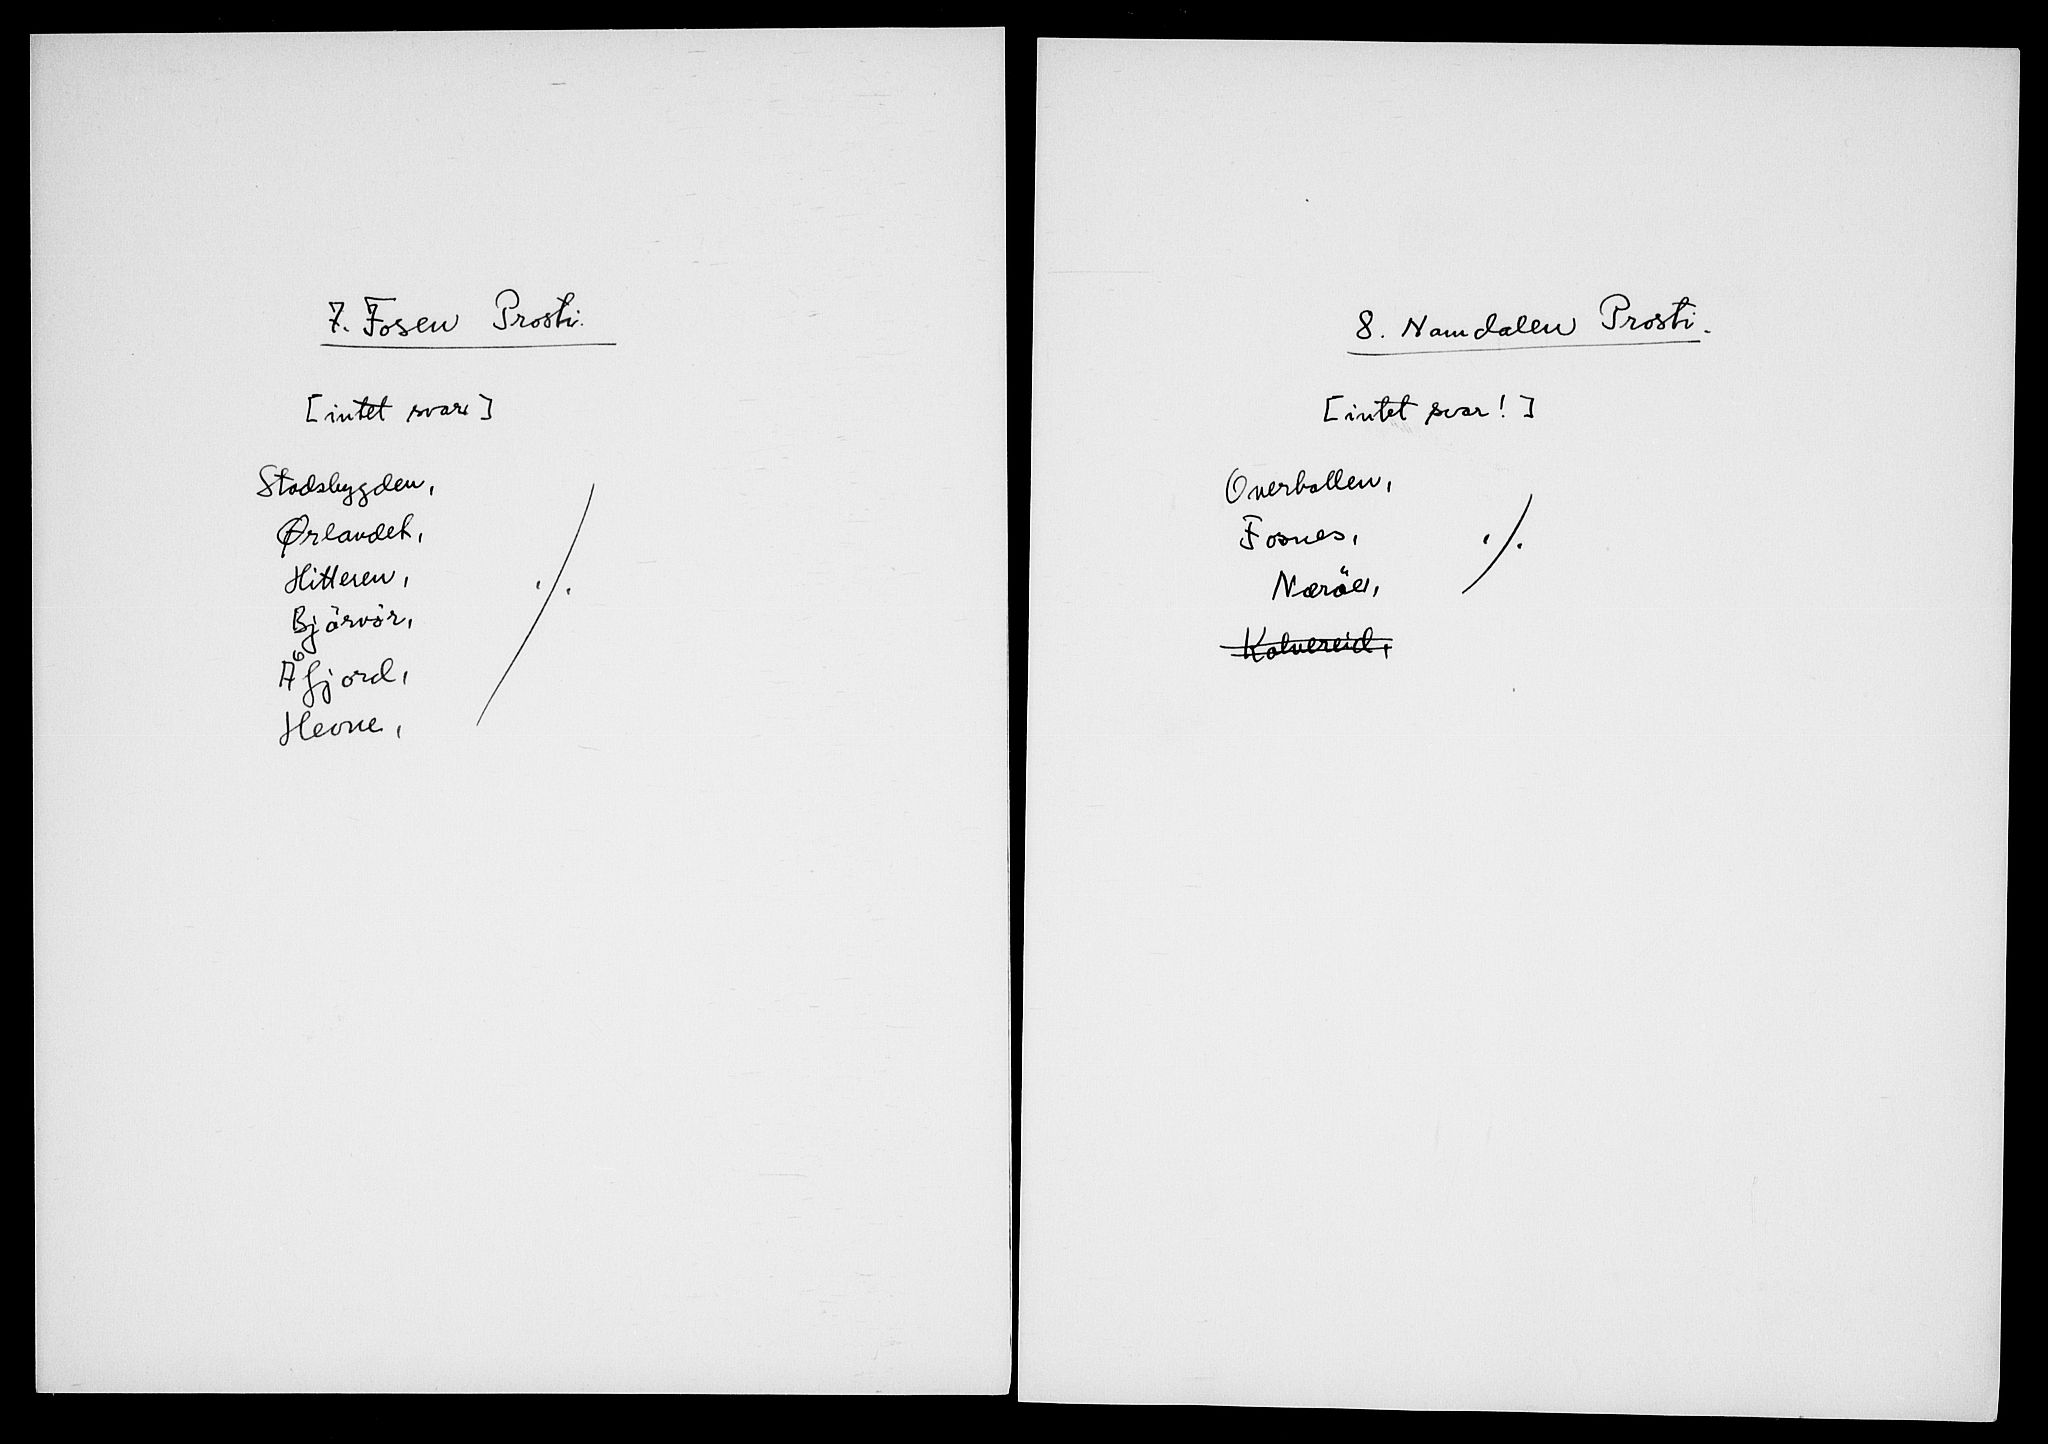 7. Fosen Prosti.
[intet svar]
Stadsbygden,
Ørlandet,
Hitteren,
Bjørnör,
Åfjord,
Hevne,
./.
8. Namdalen Prosti.
[intet svar!]
Overhallen,
Fosnes,
Nærøe,
Kolvereid,
./.